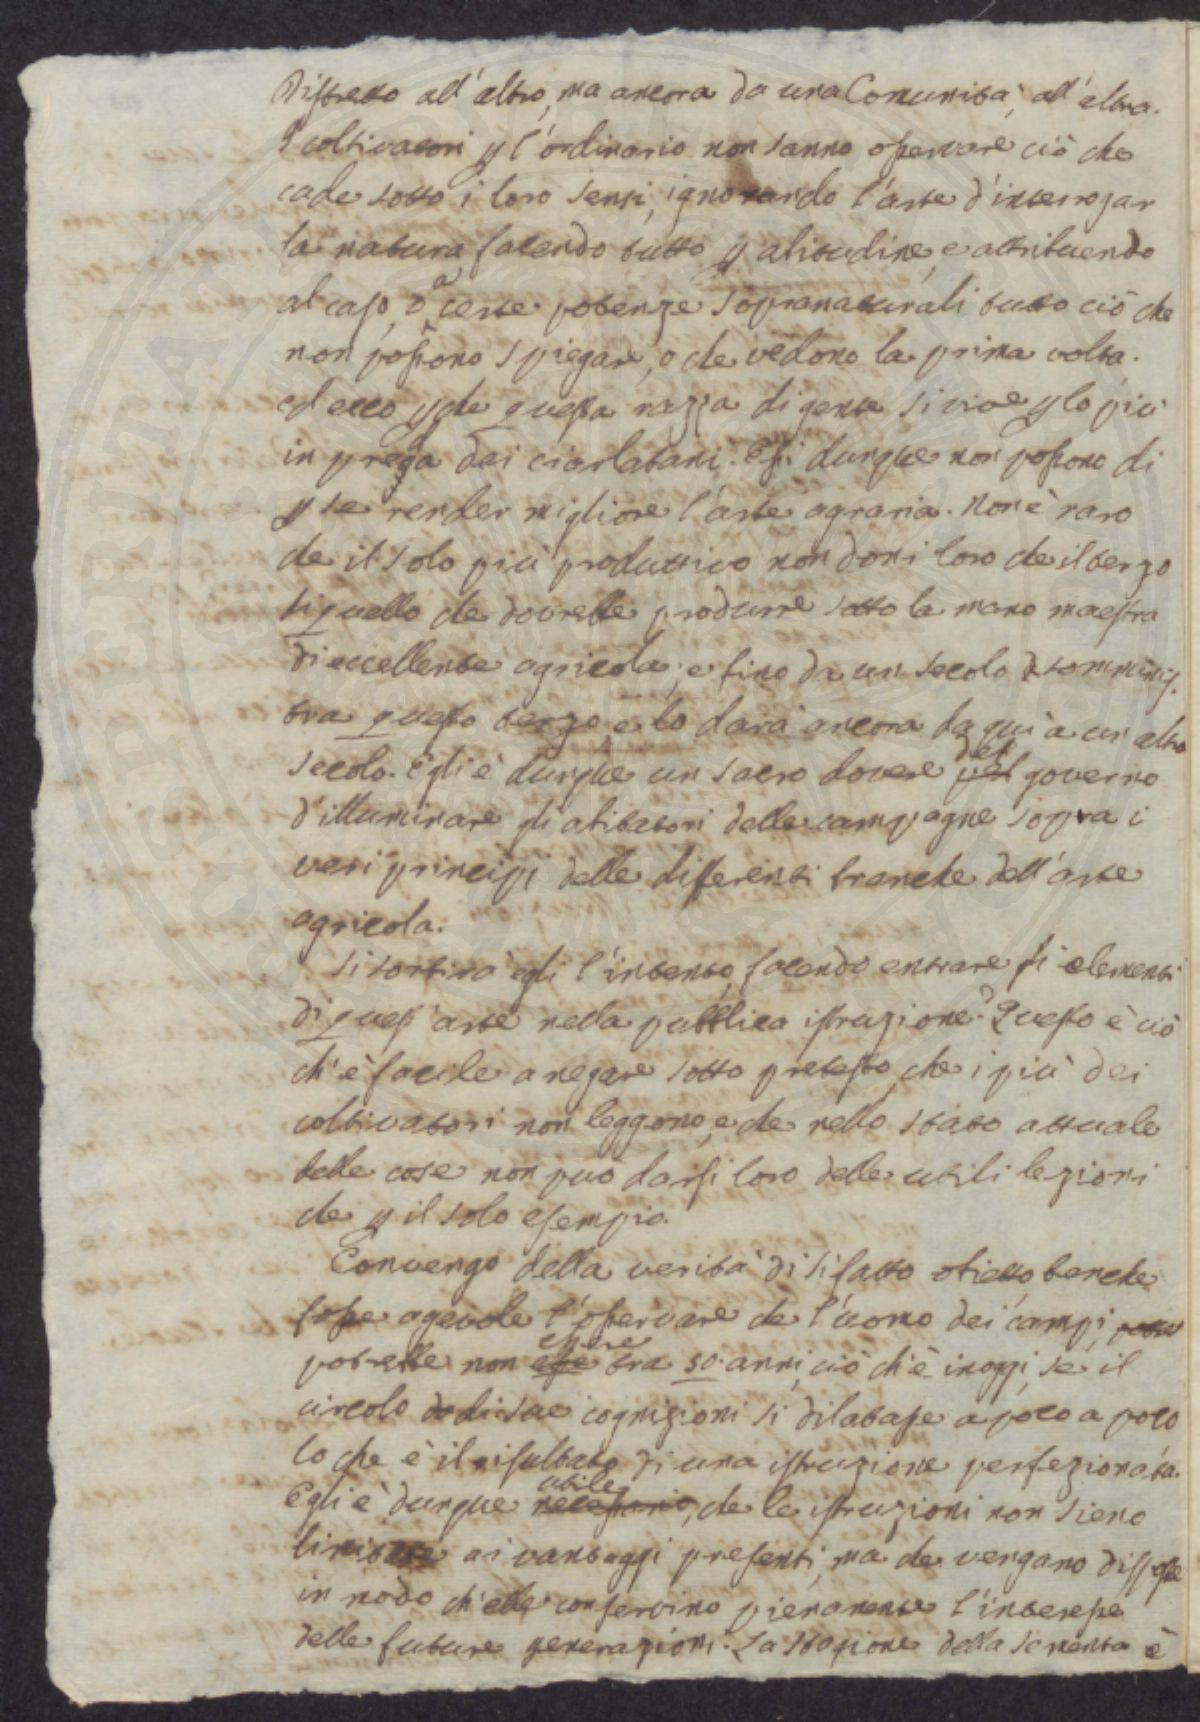 Distretto all'altro, ma ancora da una Comunità, all'altra.
I coltivatori p l'ordinario non sanno osservare ciò che
cade sotto i loro sensi, ignorando l'arte d'interrogar
la natura facendo tutto p abitudine, e attribuendo
al caso, o a certe potenze sopranaturali tutto ciò che
non possono spiegare, o che vedono la prima volta.
ed ecco pche questa razza di gente si vive p lo più
in preda dei ciarlatani. Essi dunque non possono di
p se render migliore l'arte agraria. Non è raro
che il solo più produttivo non doni loro che il terzo
di quello che dovrebbe produrre sotto la mano maestra
di eccellente agricola; e fino da un secolo somminis-
tra questo terzo, e lo darà ancora da qui a un altro
secolo. Egli è dunque un sacro dovere del governo
d'illuminare gli abitatori delle campagne sopra i
veri principj delle differenti branche dell'arte
agricola.
Si sortirà egli l'intento, facendo entrare gli elementi
di quest'arte nella pubblica istruzione? Questo è ciò
ch'è facile a negare sotto pretesto, che i più dei
coltivatori non leggono, e che nello stato attuale
delle cose non può darsi loro delle utili lezioni
che p il solo esempio.
Convengo della verità di sifatto obietto, benche
fosse agevole l'osservare che l'uomo dei campi,
potrebbe non essere tra 50. anni, ciò ch'è in oggi, se il
circolo di sue cognizioni si dilatasse a poco a poco
lo che è il risultato di una istruzione perfezionata.
Egli è dunque utile, che le istruzioni non sieno
limitate ai vantaggi presenti, ma che vengano disposte
in modo ch'elle conservino pienamente l'interesse
delle future generazioni. La stagione della sementa è